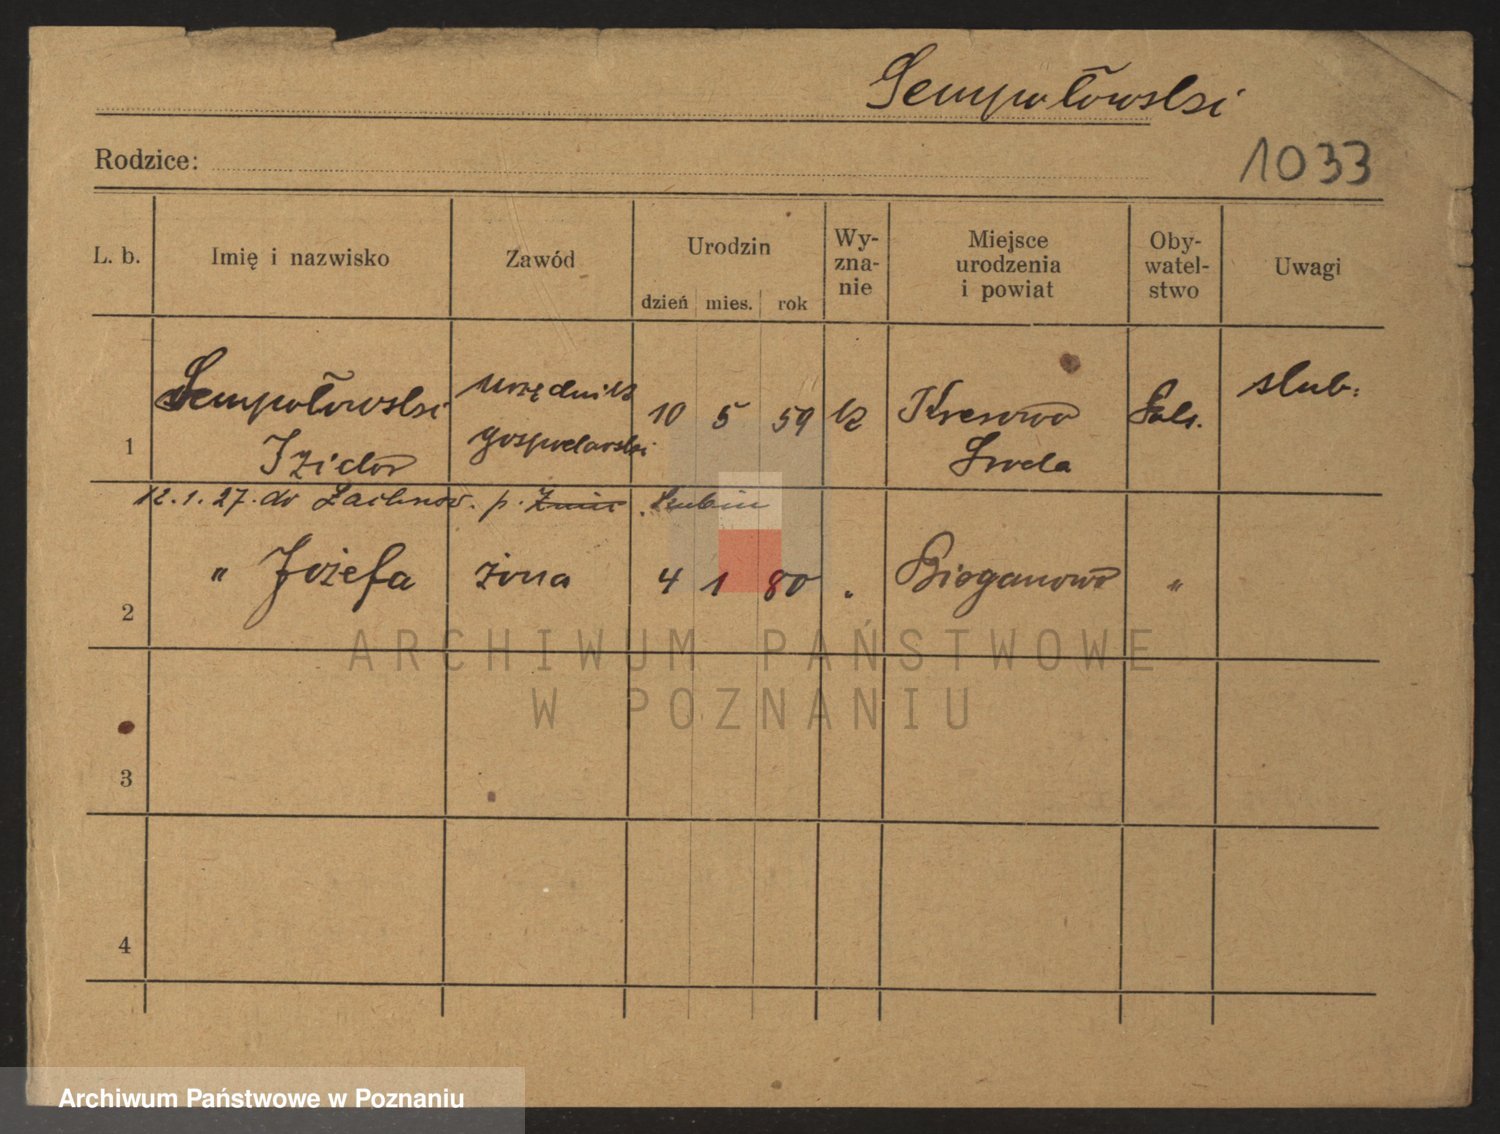 Sempołowski
Rodzice:
1033
L. b. Imię i nazwisko Zawód Urodzin dzień mies. rok Wy-zna-nie Miejsce urodzenia i powiat Oby-watel-stwo Uwagi
1 Sempołowski Izidor urzędnik gospodarski 10 5 59 k Kresowo Sroda Pols. slub.
12.1.27. do Lachnow. p. Żnin Szubin
2 " Józefa żona 4 1 80 " Bieganowo "
3
4
ARCHIWUM PAŃSTWOWE
W POZNANIU
Archiwum Państwowe w Poznaniu